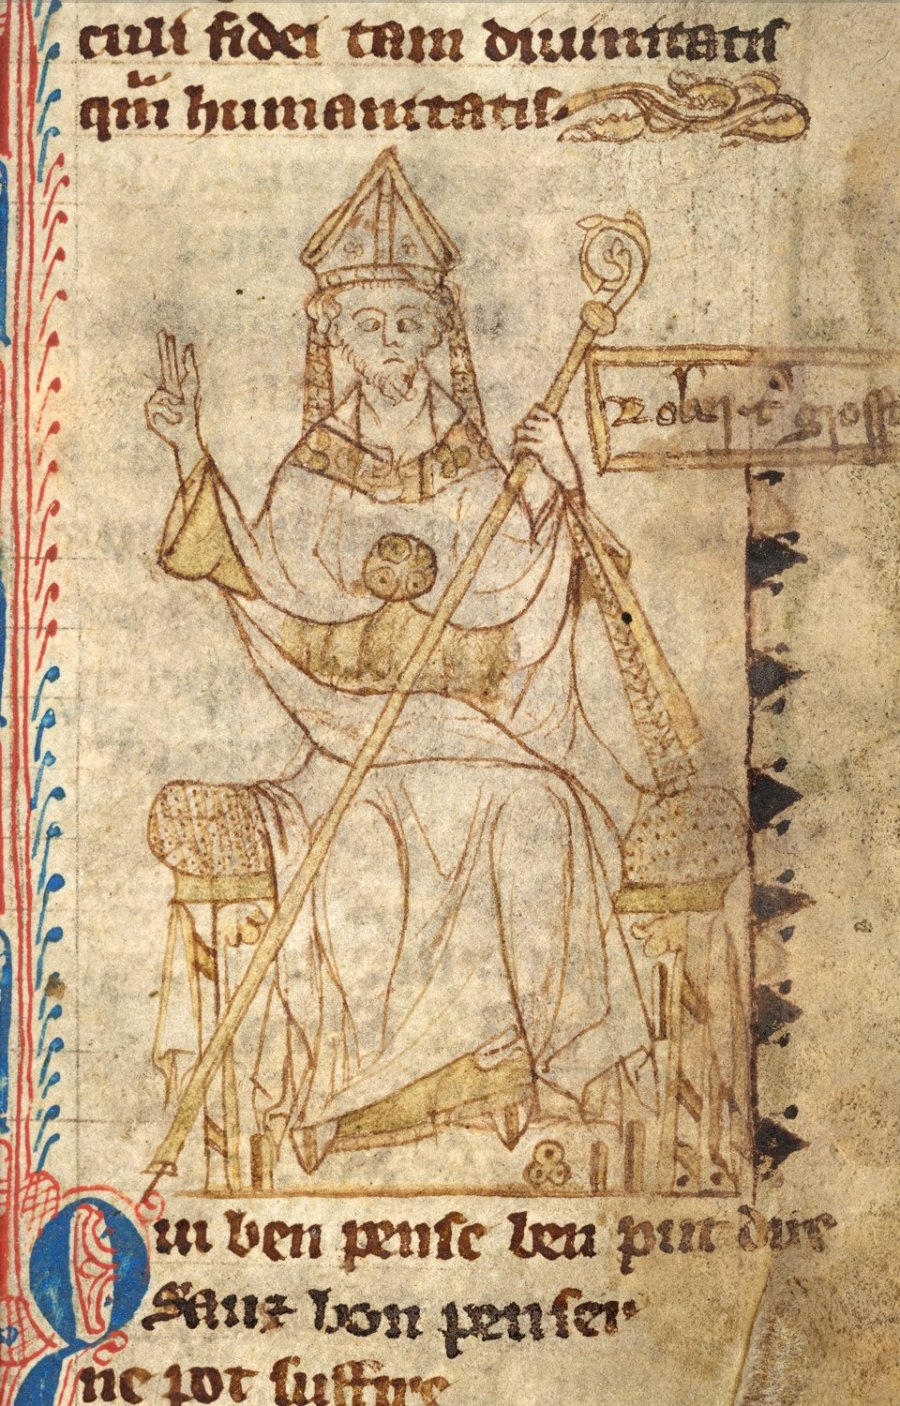 culi fidei tam diuinitatis
qm̄ humanitatis
grosse
Qui ben pense ben put dire
Sanz bon penser
ne pot suffire